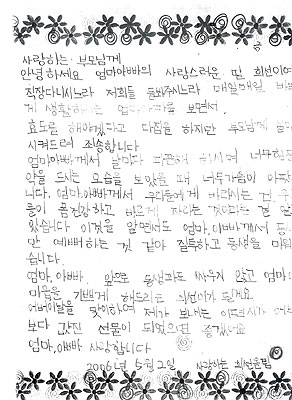 사랑하는 부모님께
안녕하세요 엄마아빠의 사랑스러운 딸 희선이에
직장다니시느라 저희들 돌봐주시느라 매일매일 바쁘
게 생활하는 엄마아빠를 보면서
효도를 해야겠다고 다짐을 하지만 부모님께
시켜드려 죄송합니다
엄마아빠께서 날마다 피곤해 하시며 너무힘든
약을 드시는 모습을 보았을 때 너무가슴이 아팠
니다. 엄마,아빠께서 우리들에게 바라시는 건
들이 몸건강하고 바르게 자라는 것이라는 걸 알
있습니다 이것을 알면서도 엄마,아빠께서 동생
만 예뻐하는 것 같아 질투하고 동생을 미워
습니다.
엄마,아빠 앞으로 동생과도 싸우지 않고 엄마
마음을 기쁘게 해드리는 희선이가 될게요
어버이날을 맞이하여 제가 보내는 이편지가
보다 값진 선물이 되었으면 좋겠네요
엄마,아빠 사랑합니다
2006년 5월 2일 사랑하는 희선올림